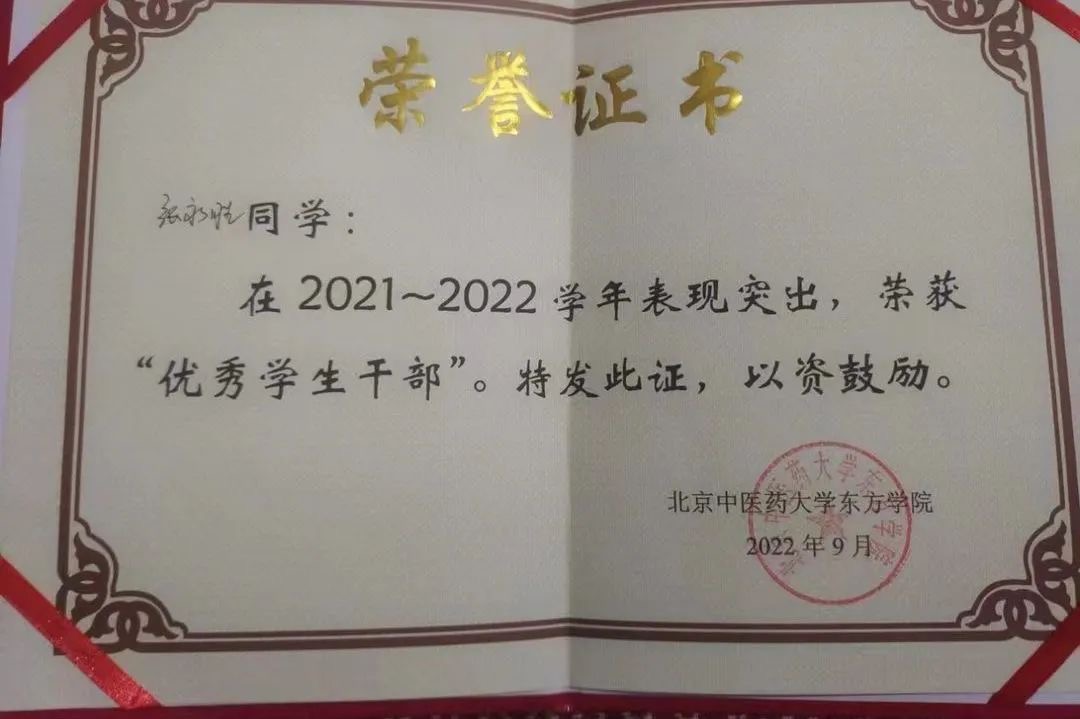 荣誉证书
张永胜同学：
在2021~2022学年表现突出，荣获
“优秀学生干部”。特发此证，以资鼓励。
北京中医药大学东方学院
2022年9月